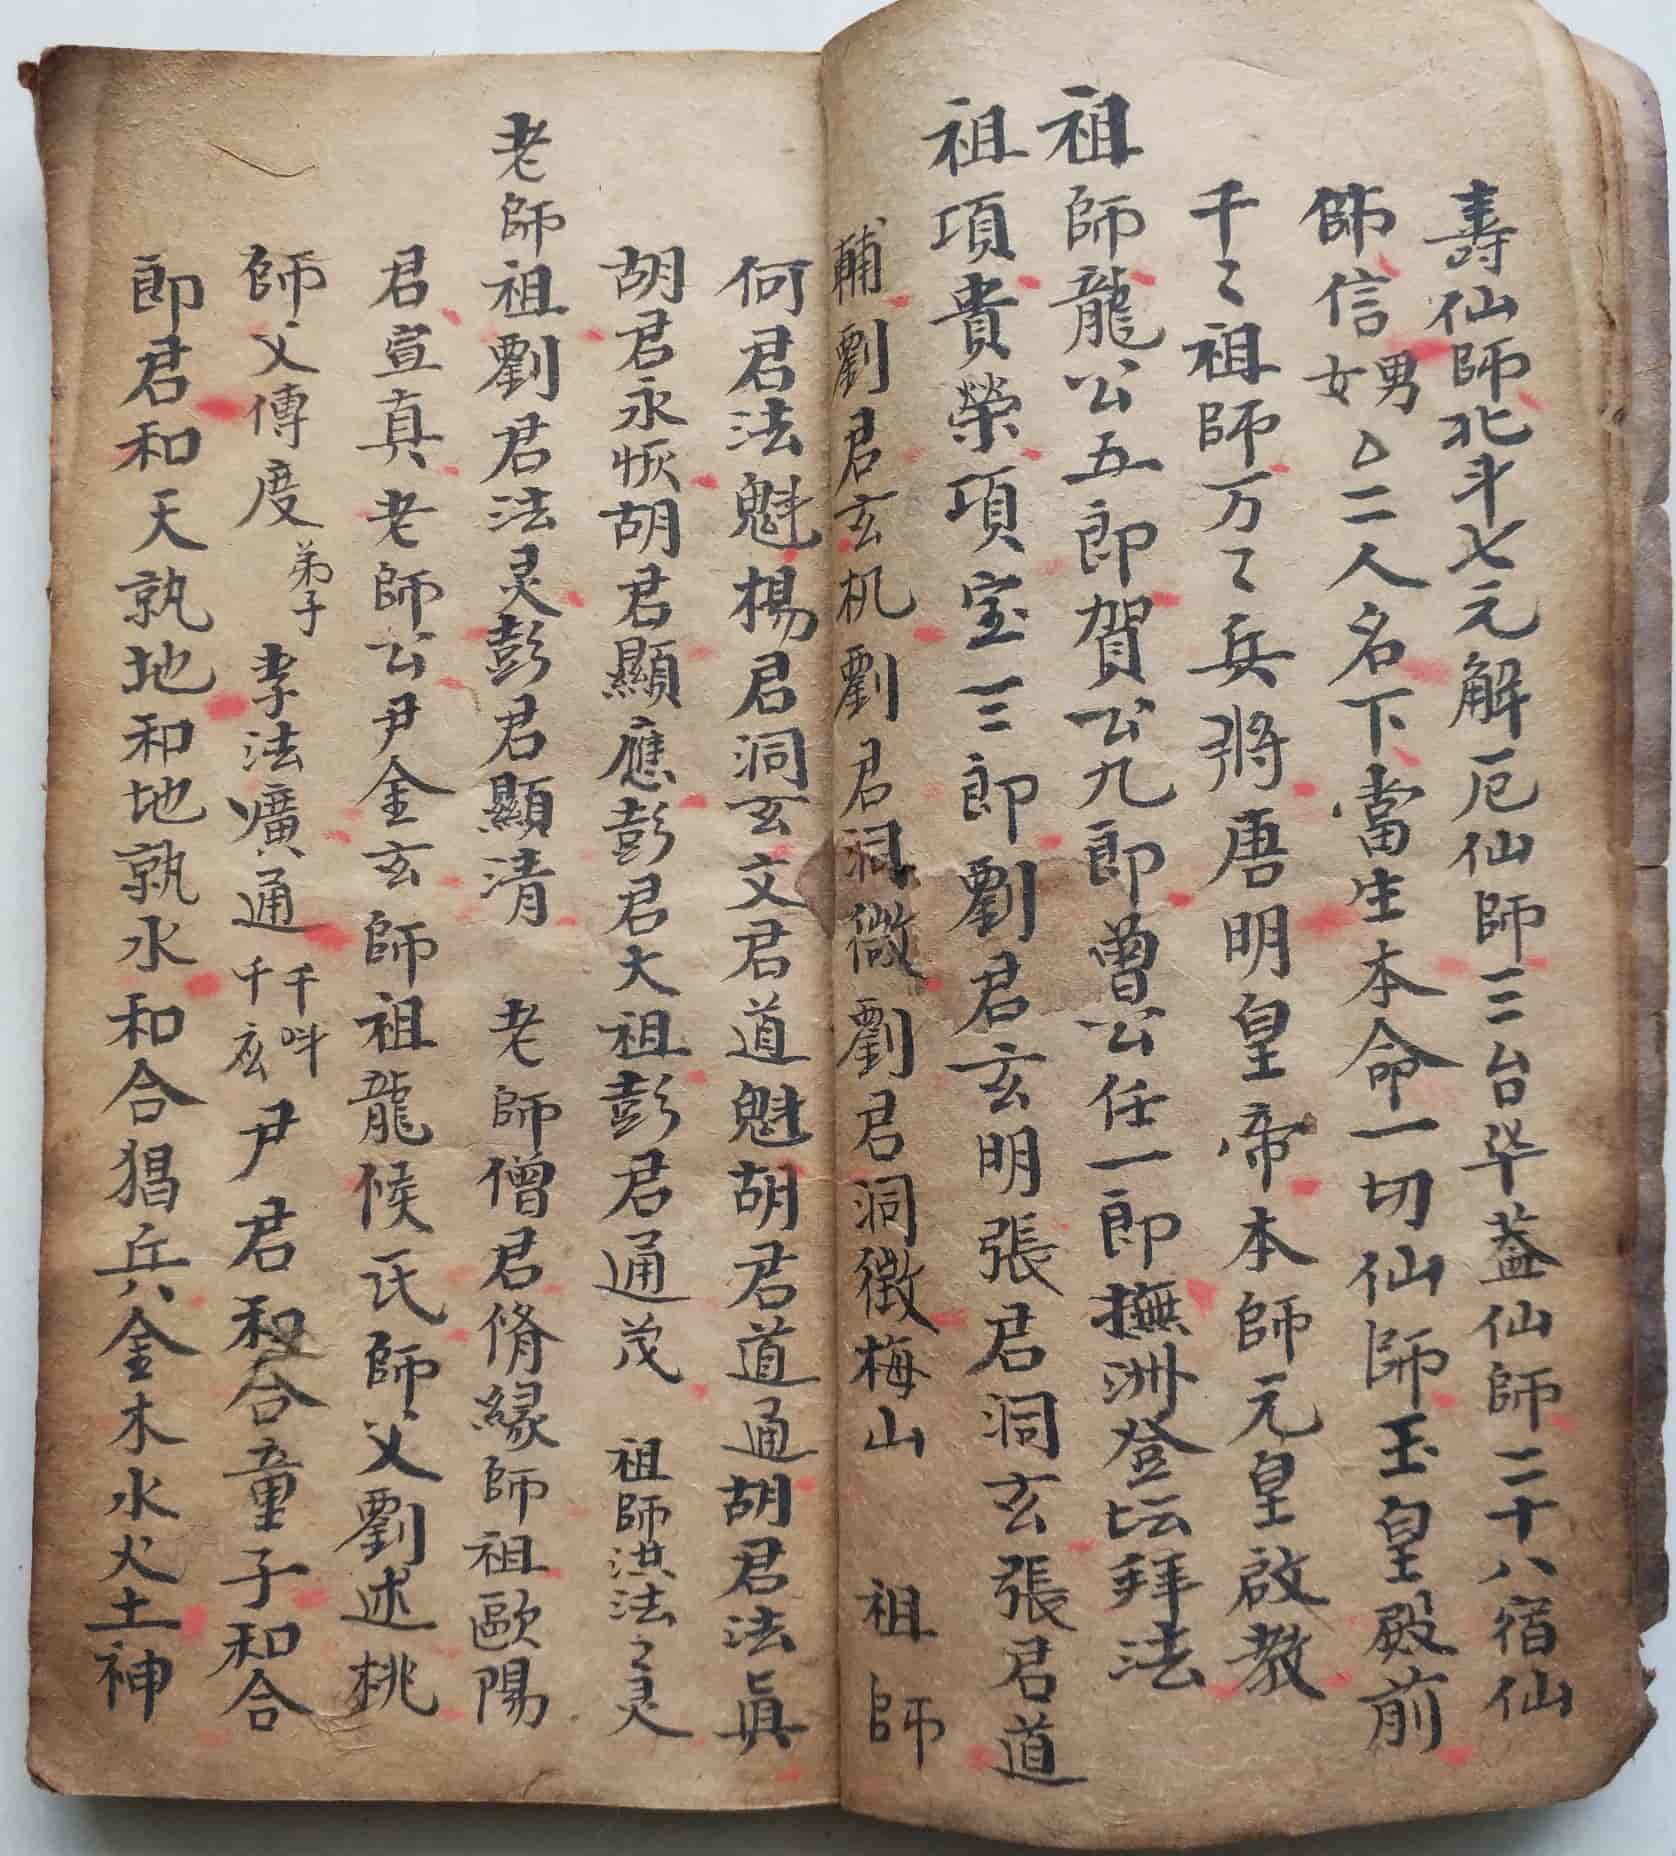 壽仙師北斗七元解厄仙師三台华蓋仙師二十八宿仙
師信男女△二人名下當生本命一切仙師玉皇殿前
千〻祖師万〻兵將唐明皇帝本師元皇啟教
祖師龍公五郎賀公九郎曾公任一郎撫洲登坛拜法
祖項貴榮項宝三郎劉君玄明張君洞玄張君道
輔劉君玄机劉君洞微劉君洞徵梅山 祖師
何君法魁楊君洞玄文君道魁胡君道通胡君法眞
胡君永恢胡君顯應彭君大祖彭君通茂 祖師洪法〻灵
老師祖劉君法灵彭君顯清 老師僧君脩緣師祖歐陽
君宣真老師公尹金玄師祖龍候氏師父劉述桃
師父傳度弟子李法廣通千千吽庅尹君和合童子和合
郎君和天孰地和地孰水和合猖兵金木水火土神